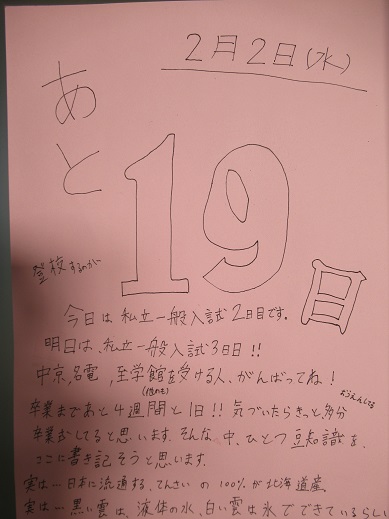 2月2日(水)
あと
19日
登校するのが
今日は私立一般入試2日目です。
明日は、私立一般入試3日目!!
中京,名電,至学館を受ける人、がんばってね!
(他のも)
おうえんしてる
卒業まであと4週間と1日!! 気づいたらきっと多分
卒業してると思います。そんな中、ひとつ豆知識を
ここに書き記そうと思います。
実は…日本に流通する、てんさいの100%が北海道産
実は…黒い雲は、液体の水、白い雲は氷でできているらしい